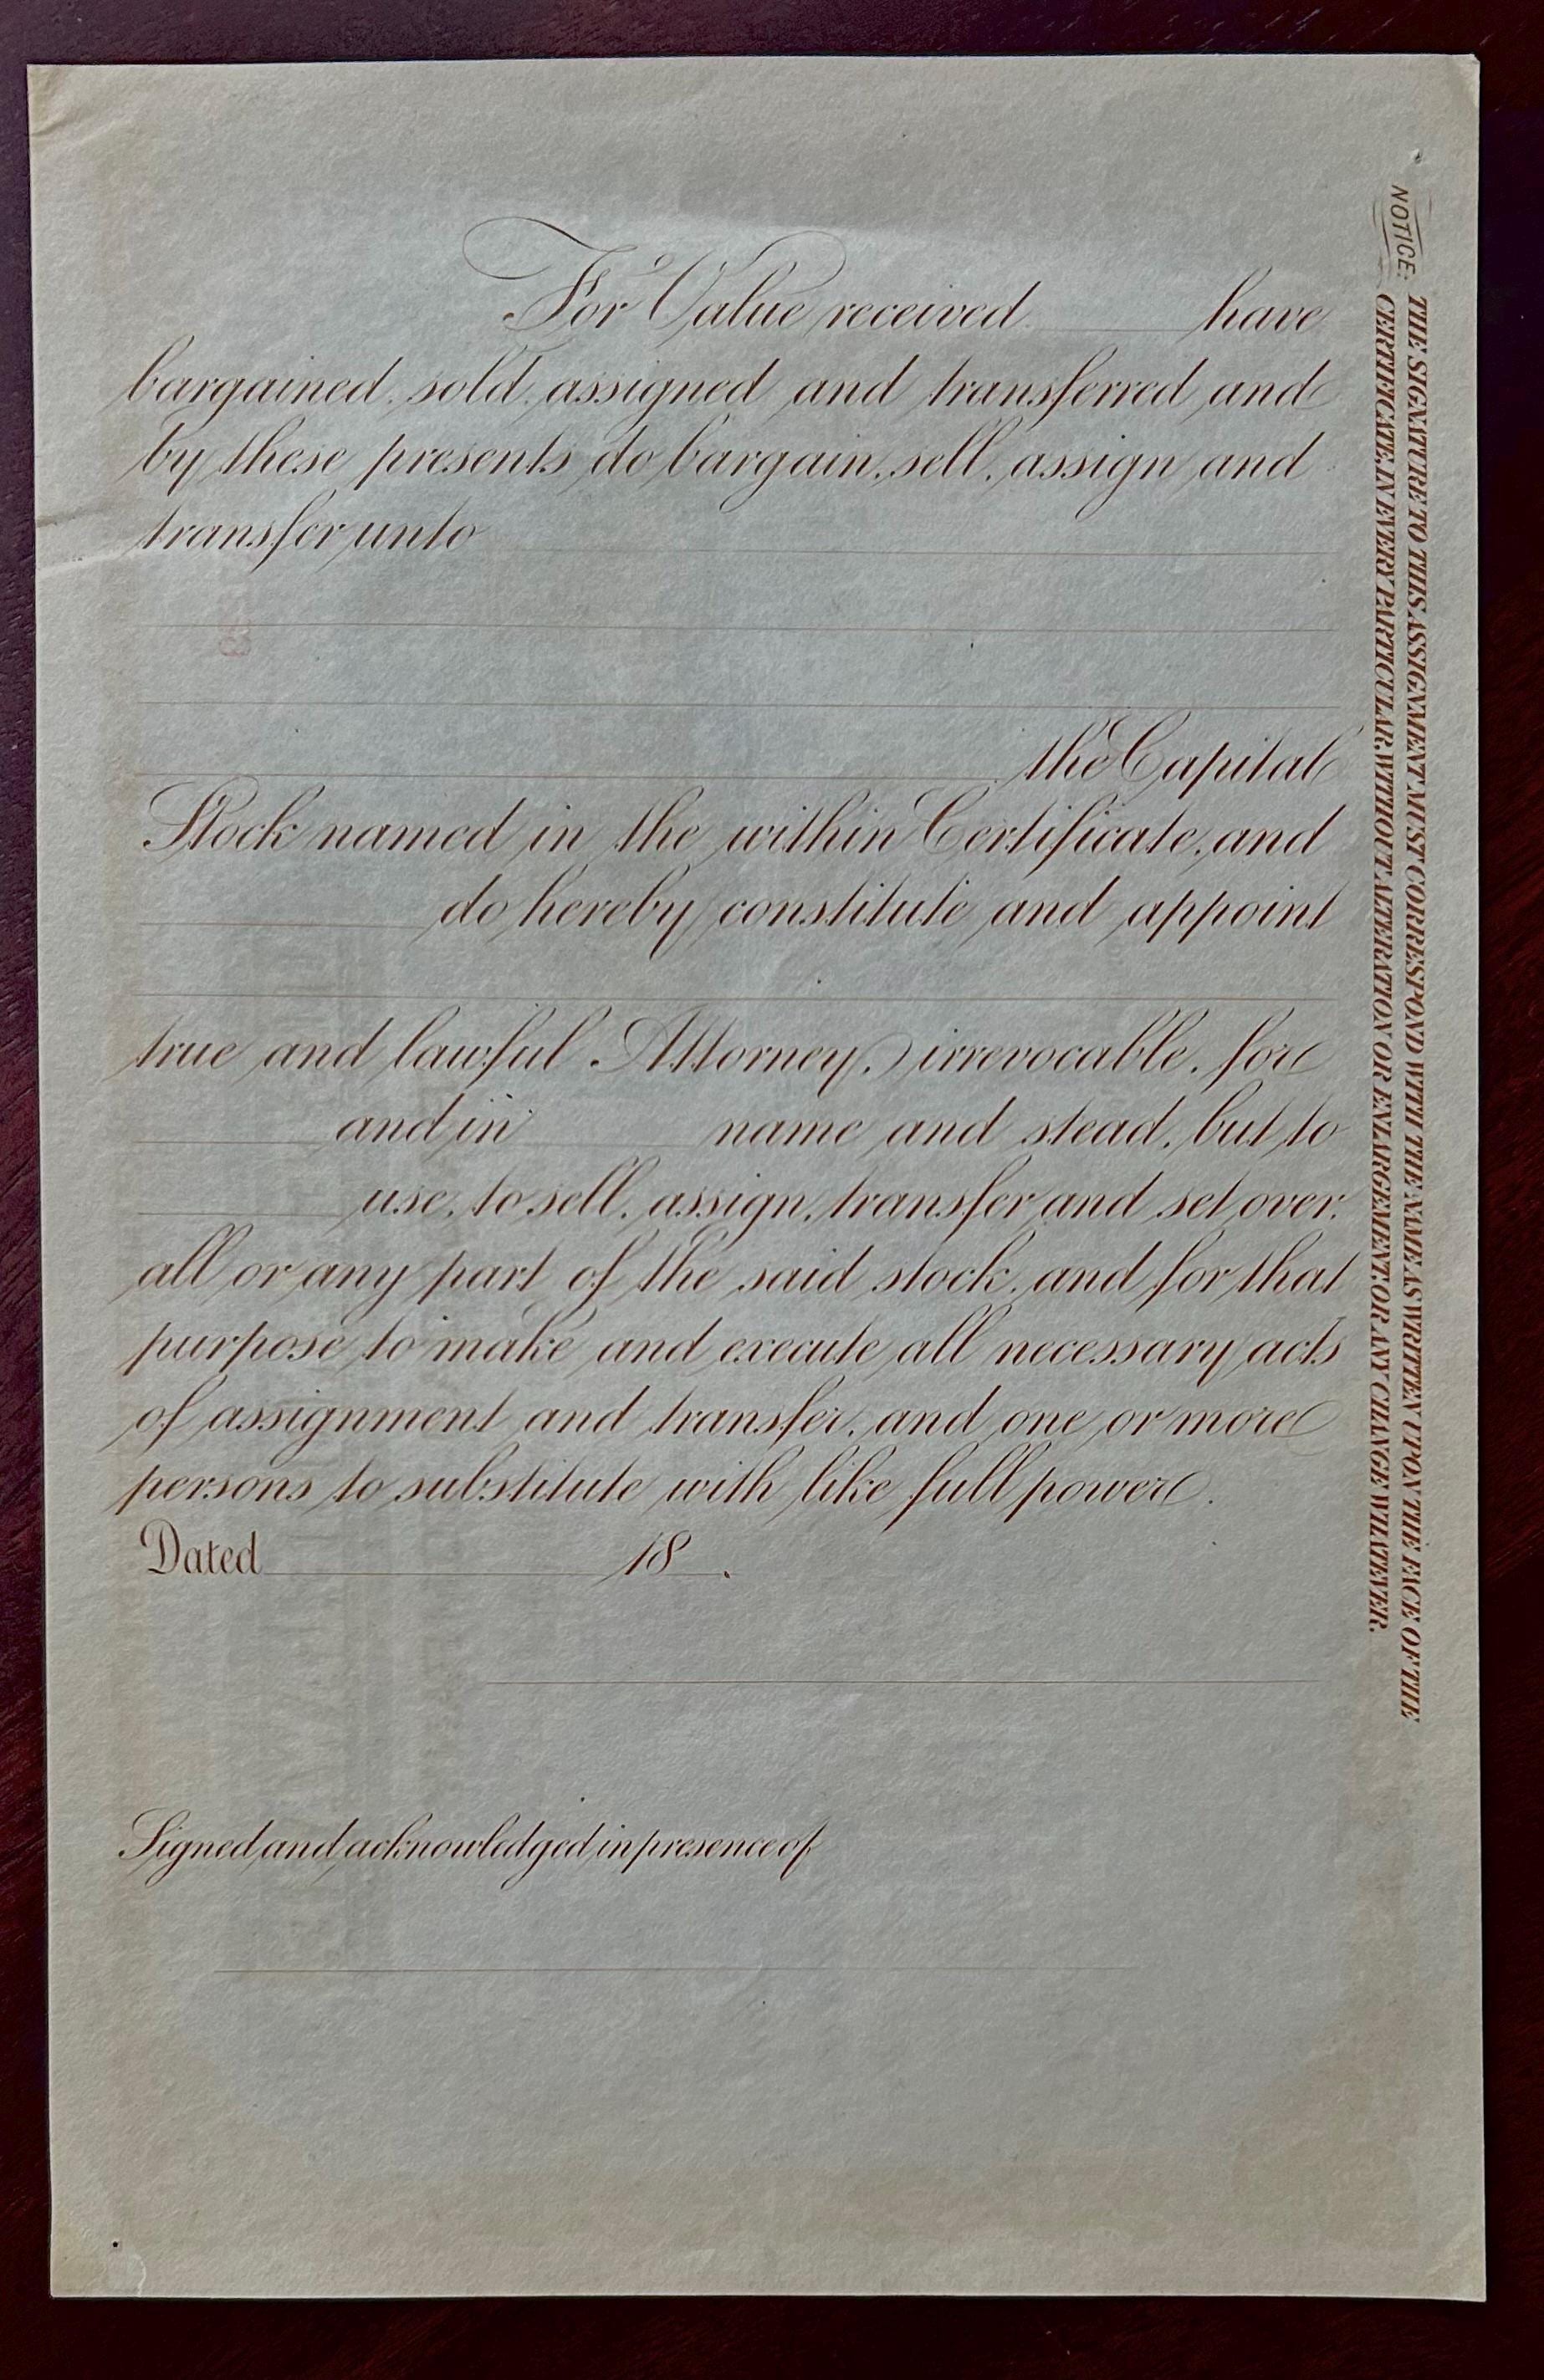 For Value received have
bargained, sold, assigned and transferred and
by these presents do bargain, sell, assign and
transfer unto
the Capital
Stock named in the within Certificate, and
do hereby constitute and appoint
true and lawful Attorney, irrevocable, for
and in name and stead, but to
use, to sell, assign, transfer and set over,
all or any part of the said stock, and for that
purpose to make and execute all necessary acts
of assignment and transfer, and one or more
persons to substitute with like full power.
Dated 18 .
Signed and acknowledged in presence of
NOTICE: THE SIGNATURE TO THIS ASSIGNMENT MUST CORRESPOND WITH THE NAME AS WRITTEN UPON THE FACE OF THE
CERTIFICATE, IN EVERY PARTICULAR, WITHOUT ALTERATION OR ENLARGEMENT, OR ANY CHANGE WHATEVER.